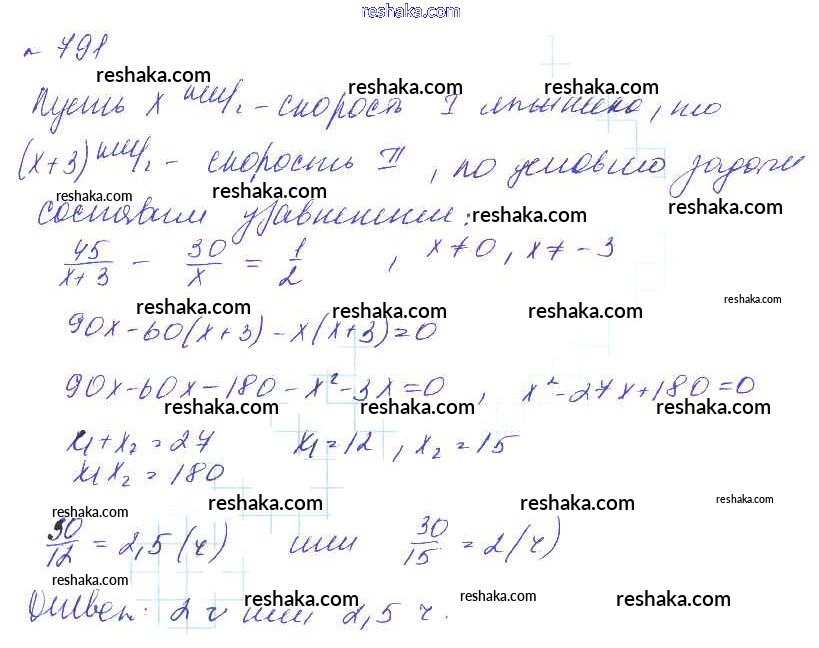 reshaka.com
№ 791
reshaka.com reshaka.com
Пусть x км/ч - скорость I лыжника, то
(x+3) км/ч - скорость II, по условию задачи
reshaka.com reshaka.com reshaka.com
составим уравнение: reshaka.com
45/(x+3) - 30/x = 1/2, x≠0, x≠-3
reshaka.com reshaka.com reshaka.com reshaka.com
90x-60(x+3)-x(x+3)=0
90x-60x-180-x²-3x=0, x²-27x+180=0
reshaka.com reshaka.com reshaka.com
x₁+x₂=27 x₁=12, x₂=15
x₁x₂=180
reshaka.com reshaka.com reshaka.com reshaka.com
30/12=2,5(ч) или 30/15=2(ч)
reshaka.com
Ответ: 2 ч или 2,5 ч.
reshaka.com reshaka.com reshaka.com